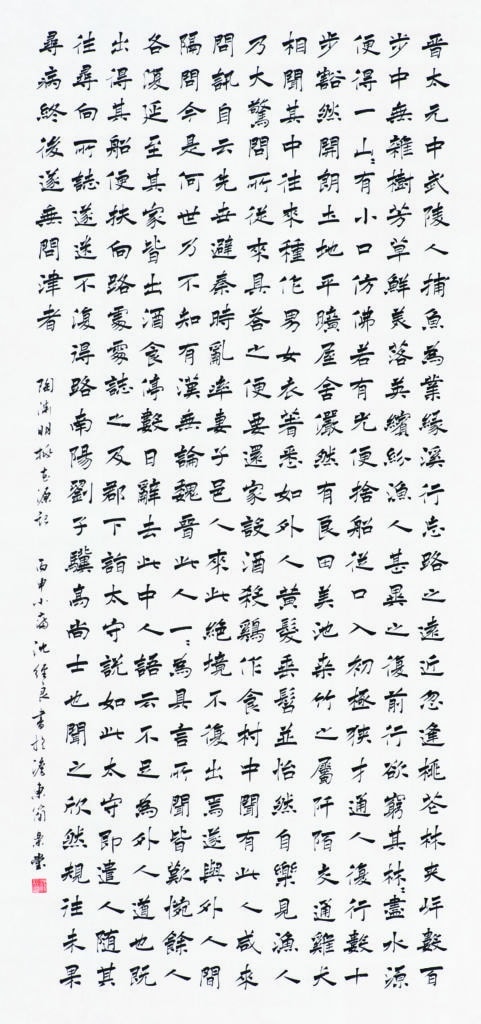 晉太元中武陵人捕魚為業緣溪行忘路之遠近忽逢桃花林夾岸數百
步中無雜樹芳草鮮美落英繽紛漁人甚異之復前行欲窮其林〻盡水源
便得一山〻有小口仿佛若有光便捨船從口入初極狹才通人復行數十
步豁然開朗土地平曠屋舍儼然有良田美池桑竹之屬阡陌交通雞犬
相聞其中往來種作男女衣著悉如外人黃髮垂髫並怡然自樂見漁人
乃大驚問所從來具答之便要還家設酒殺鷄作食村中聞有此人咸來
問訊自云先世避秦時亂率妻子邑人來此絕境不復出焉遂與外人間
隔問今是何世乃不知有漢無論魏晉此人一〻為具言所聞皆歎惋餘人
各復延至其家皆出酒食停數日辭去此中人語云不足為外人道也既
出得其船便扶向路處處誌之及郡下詣太守說如此太守即遣人隨其
往尋向所誌遂迷不復得路南陽劉子驥高尚士也聞之欣然規往未果
尋病終後遂無問津者
陶淵明桃花源記 丙申小 良書於 東